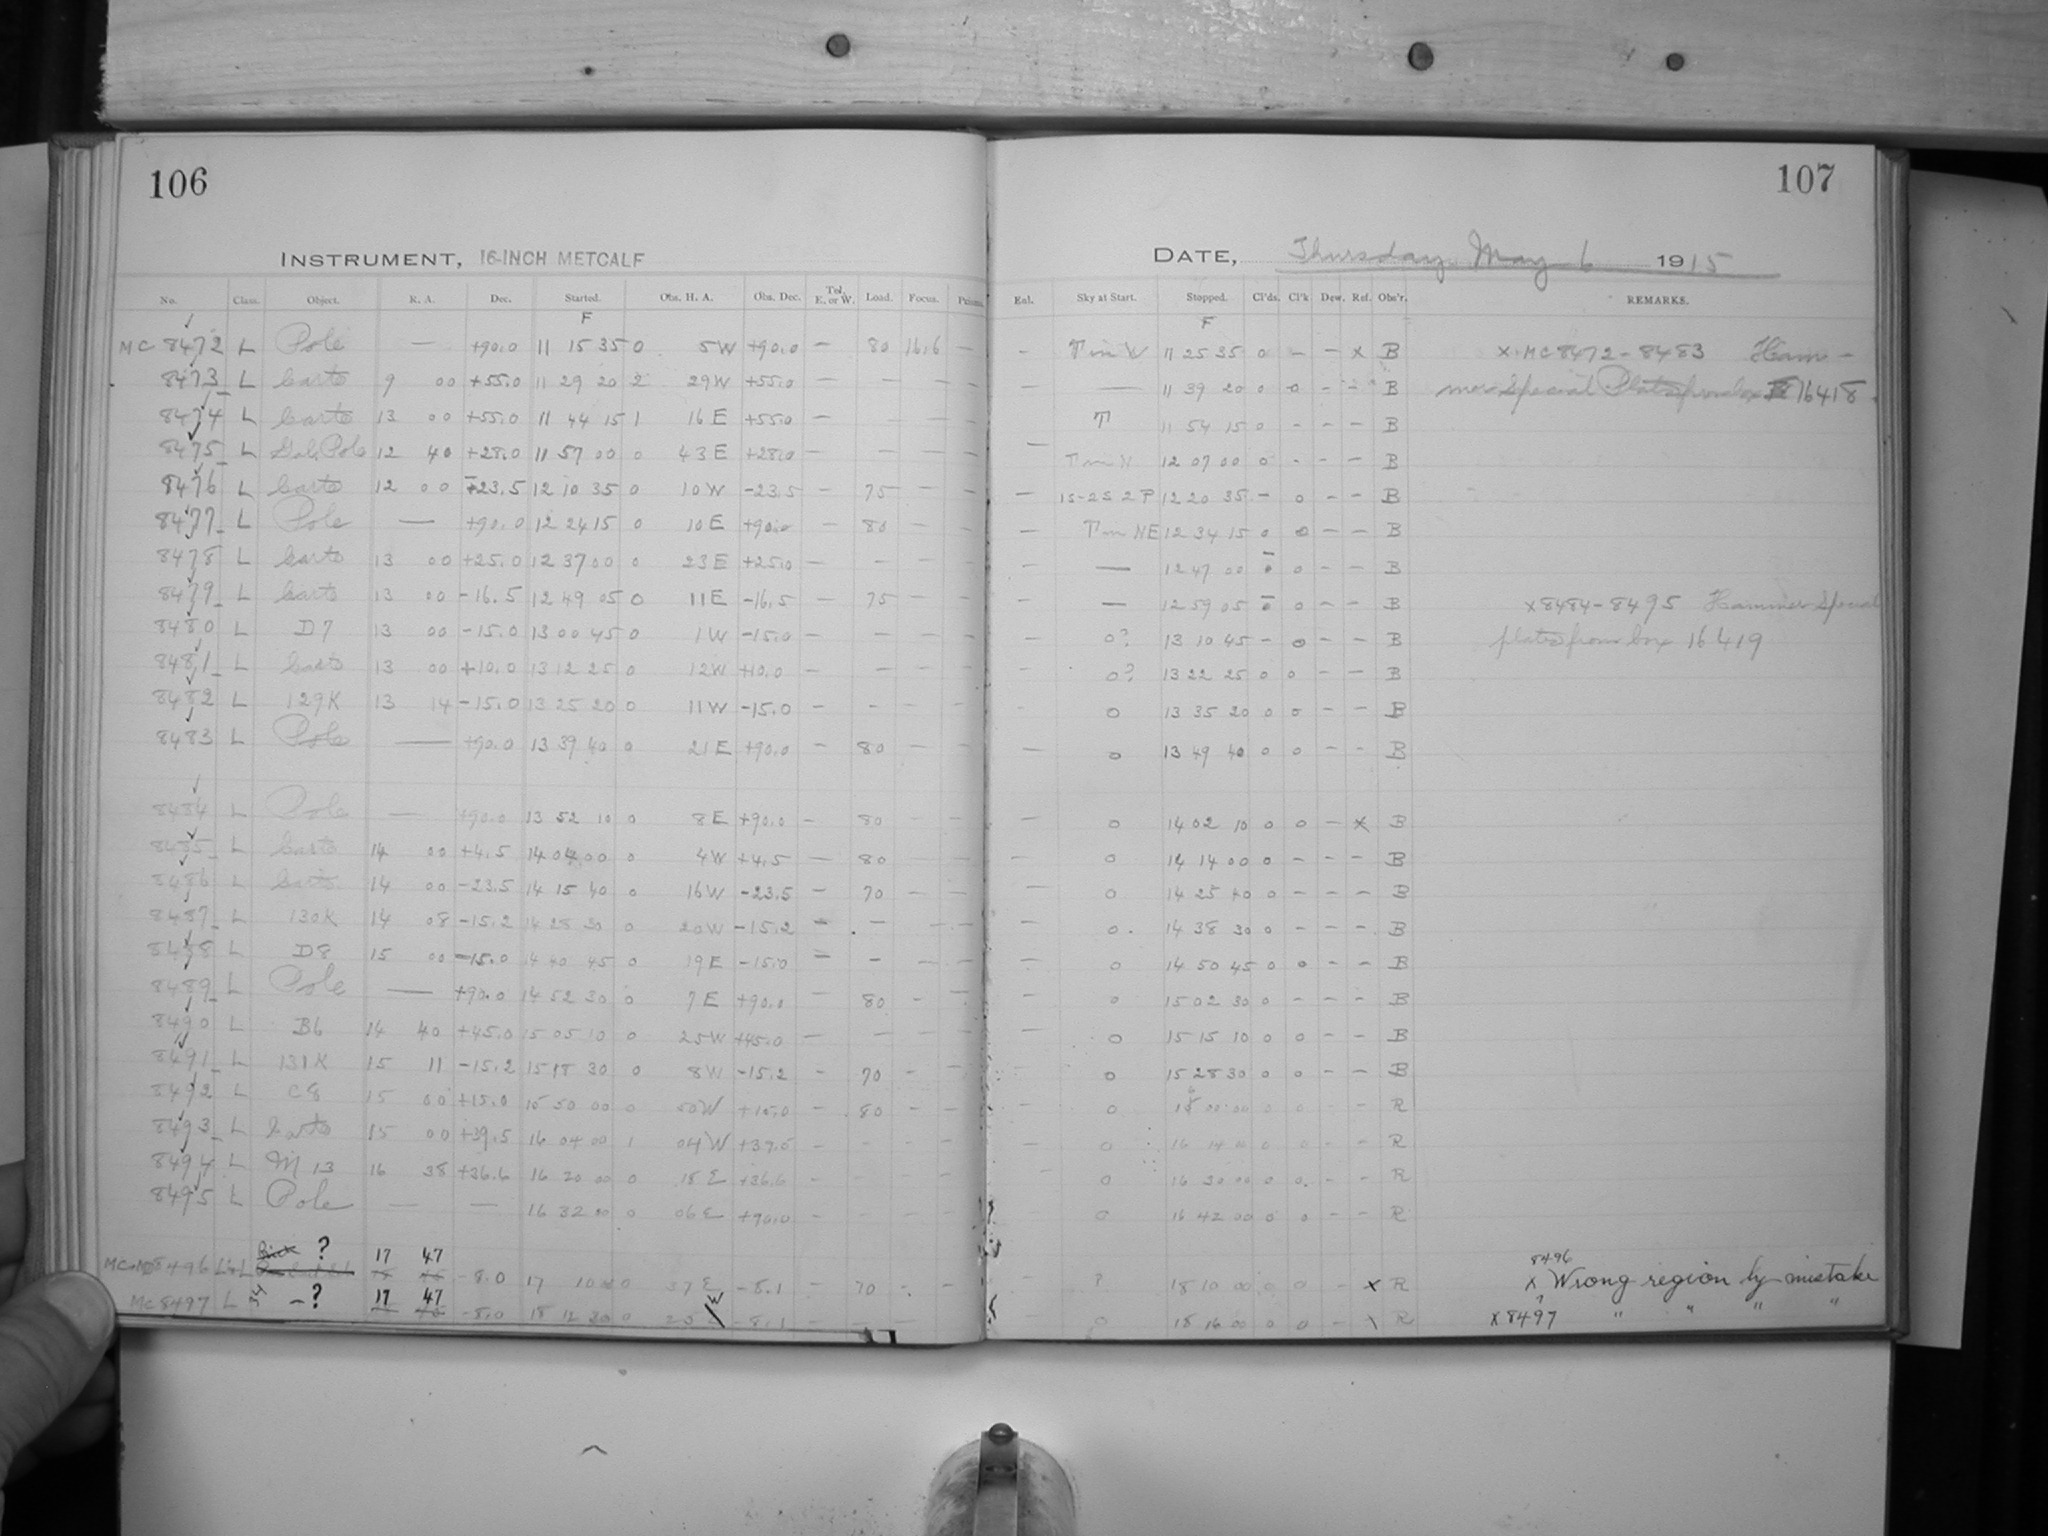 106
INSTRUMENT, 16-INCH METCALF
No. Class. Object. R. A. Dec. Started. Obs. H. A. Obs. Dec. Tel. E. or W. Load. Focus.
F
MC 8472 L Pole — +90.0 11 15 35 0 5W +90.0 — 80 16.6 —
8473 L Carte 9 00 +55.0 11 29 20 2 29W +55.0 — — — —
8474 L Carte 13 00 +55.0 11 44 15 1 16E +55.0 — — — —
8475 L Gal. Pole 12 40 +28.0 11 57 00 0 43E +28.0 — — — —
8476 L Carte 12 00 -23.5 12 10 35 0 10W -23.5 — 75 — —
8477 L Pole — +90.0 12 24 15 0 10E +90.0 — 80 — —
8478 L Carte 13 00 +25.0 12 37 00 0 23E +25.0 — — — —
8479 L Carte 13 00 -16.5 12 49 05 0 11E -16.5 — 75 — —
8480 L D7 13 00 -15.0 13 00 45 0 1W -15.0 — — — —
8481 L Carte 13 00 +10.0 13 12 25 0 12W +10.0 — — — —
8482 L 129K 13 14 -15.0 13 25 20 0 11W -15.0 — - — —
8483 L Pole — +90.0 13 39 40 0 21E +90.0 — 80 — —
8484 L Pole — +90.0 13 52 10 0 8E +90.0 — 80 — —
8485 L Carte 14 00 +4.5 14 04 00 0 4W +4.5 — 80 — —
8486 L Carte 14 00 -23.5 14 15 40 0 16W -23.5 — 70 — —
8487 L 130K 14 08 -15.2 14 28 30 0 20W -15.2 — — — —
8488 L D8 15 00 -15.0 14 40 45 0 19E -15.0 — — — —
8489 L Pole — +90.0 14 52 30 0 7E +90.0 — 80 - —
8490 L B6 14 40 +45.0 15 05 10 0 25W +45.0 — — — —
8491 L 131K 15 11 -15.2 15 18 30 0 8W -15.2 — 70 - —
8492 L C8 15 00 +15.0 15 50 00 0 50W +15.0 — 80 — —
8493 L Carte 15 00 +39.5 16 04 00 1 04W +39.5 - - - —
8494 L M 13 16 38 +36.6 16 20 00 0 18E +36.6 - - - -
8495 L Pole — — 16 32 00 0 06E +90.0 - - - -
? 17 47
8496 L -8.0 17 10 0 37E -8.1 - 70 - -
MC 8497 L —? 17 47 -8.0 18 12 30 0 W -8.1 — — —
107
DATE, Thursday May 6 1915
Enl. Sky at Start. Stopped. Cl'ds. Cl'k Dew. Ref. Obs'r. REMARKS.
F
- T in W 11 25 35 0 - - x B x MC 8472-8483 Ham-
- — 11 39 20 0 0 - - B mer Special Plates from box 16418.
T 11 54 15 0 - - - B
— T in N 12 07 00 0 - - - B
— 1S-2S 2P 12 20 35 - 0 - - B
- T in NE 12 34 15 0 0 - - B
- — 12 47 00 0 - - B
- — 12 59 05 0 - - B x 8484-8495 Hammer Special
- 0? 13 10 45 - 0 - - B plates from box 16419
- 0? 13 22 25 0 0 - - B
- 0 13 35 20 0 0 - - B
— 0 13 49 40 0 0 - - B
— 0 14 02 10 0 0 - x B
— 0 14 14 00 0 - - - B
— 0 14 25 40 0 - - - B
— 0 14 38 30 0 - - - B
— 0 14 50 45 0 0 - - B
- 0 15 02 30 0 - - - B
— 0 15 15 10 0 0 - - B
- 0 15 28 30 0 0 - - B
— 0 16 00 00 0 0 - - R
— 0 16 14 00 0 0 - - R
- 0 16 30 00 0 0 - - R
- 0 16 42 00 0 0 - - R
8496
- ? 18 10 00 0 0 - x R x Wrong region by mistake
- 0 18 16 00 0 0 - R x 8497 " " " "